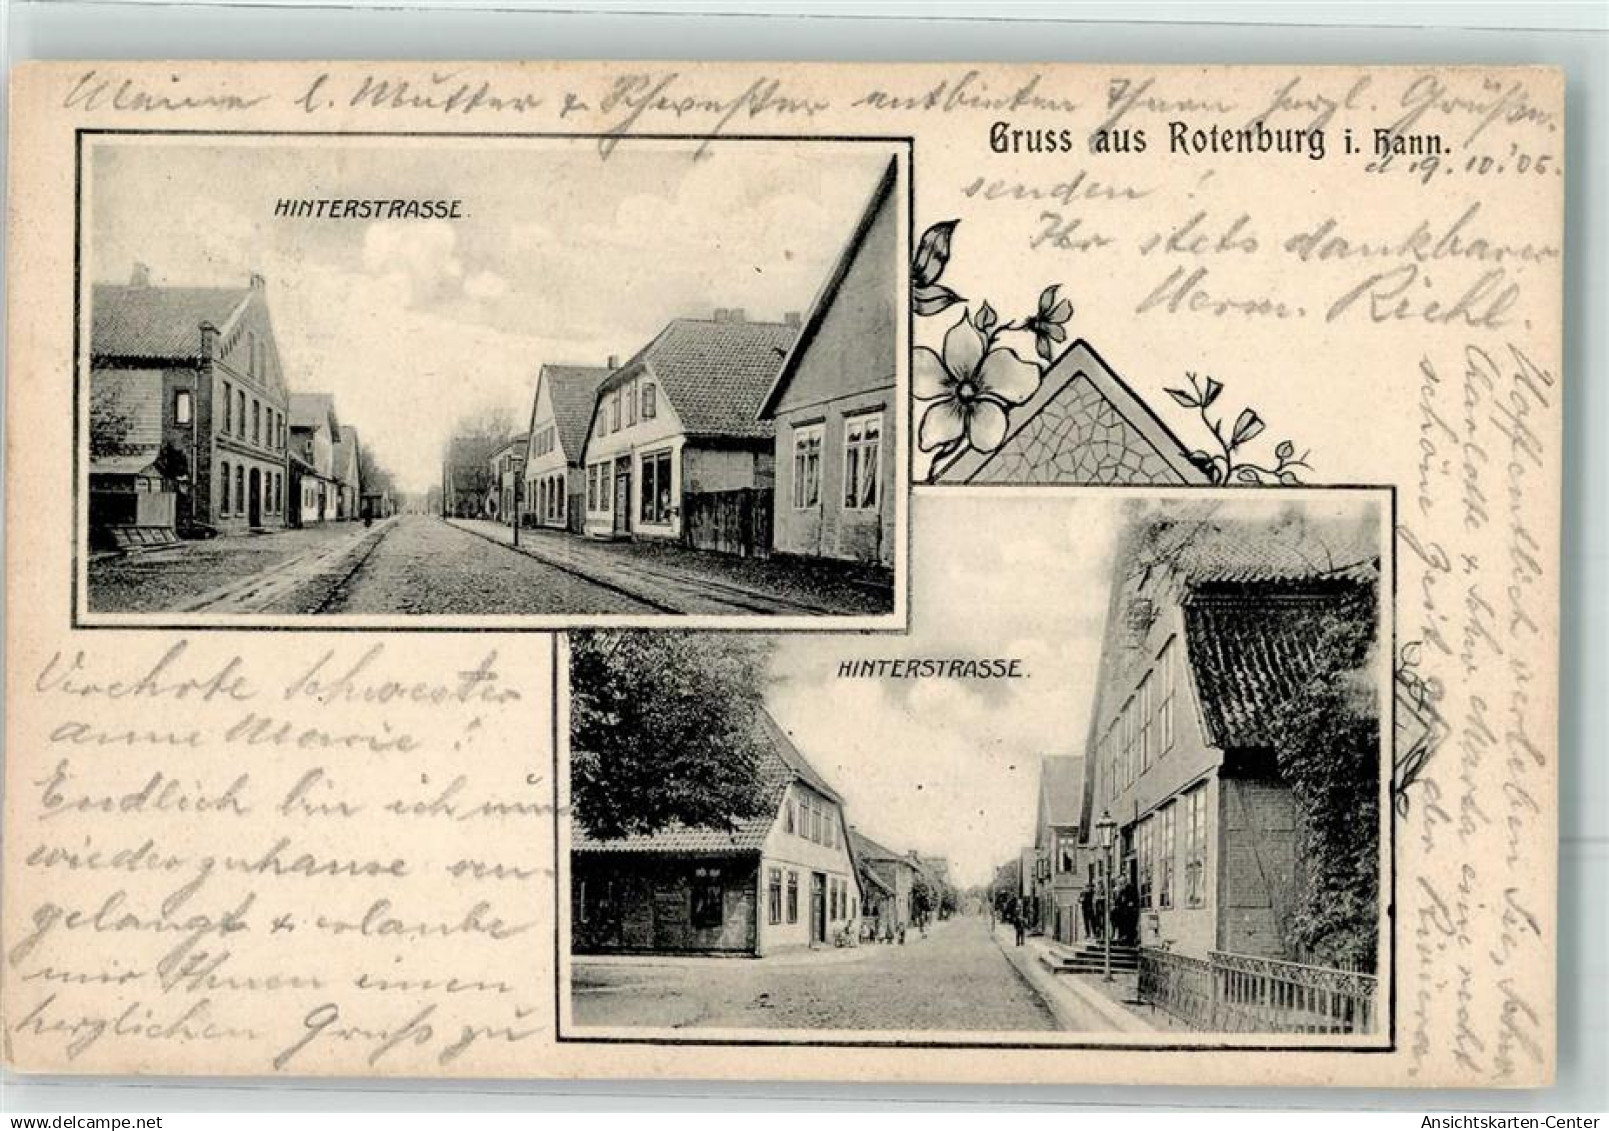 Meine l. Mutter & Schwester entbieten Ihnen herzl. Grüßen.
Gruss aus Rotenburg i. Hann.
d 19. 10. 05.
HINTERSTRASSE.
HINTERSTRASSE.
Verehrte Schwester
Anne Marie!
Endlich bin ich nun
wieder zuhause an-
gelangt & erlaube
mir Ihnen einen
herzlichen Gruß zu
senden!
Ihr stets dankbarer
Herm. Riehl.
Hoffentlich verleben Sie, Schw.
Charlotte & Schw. Martha eine recht
schöne Zeit an der Riviera.
Ansichtskarten-Center